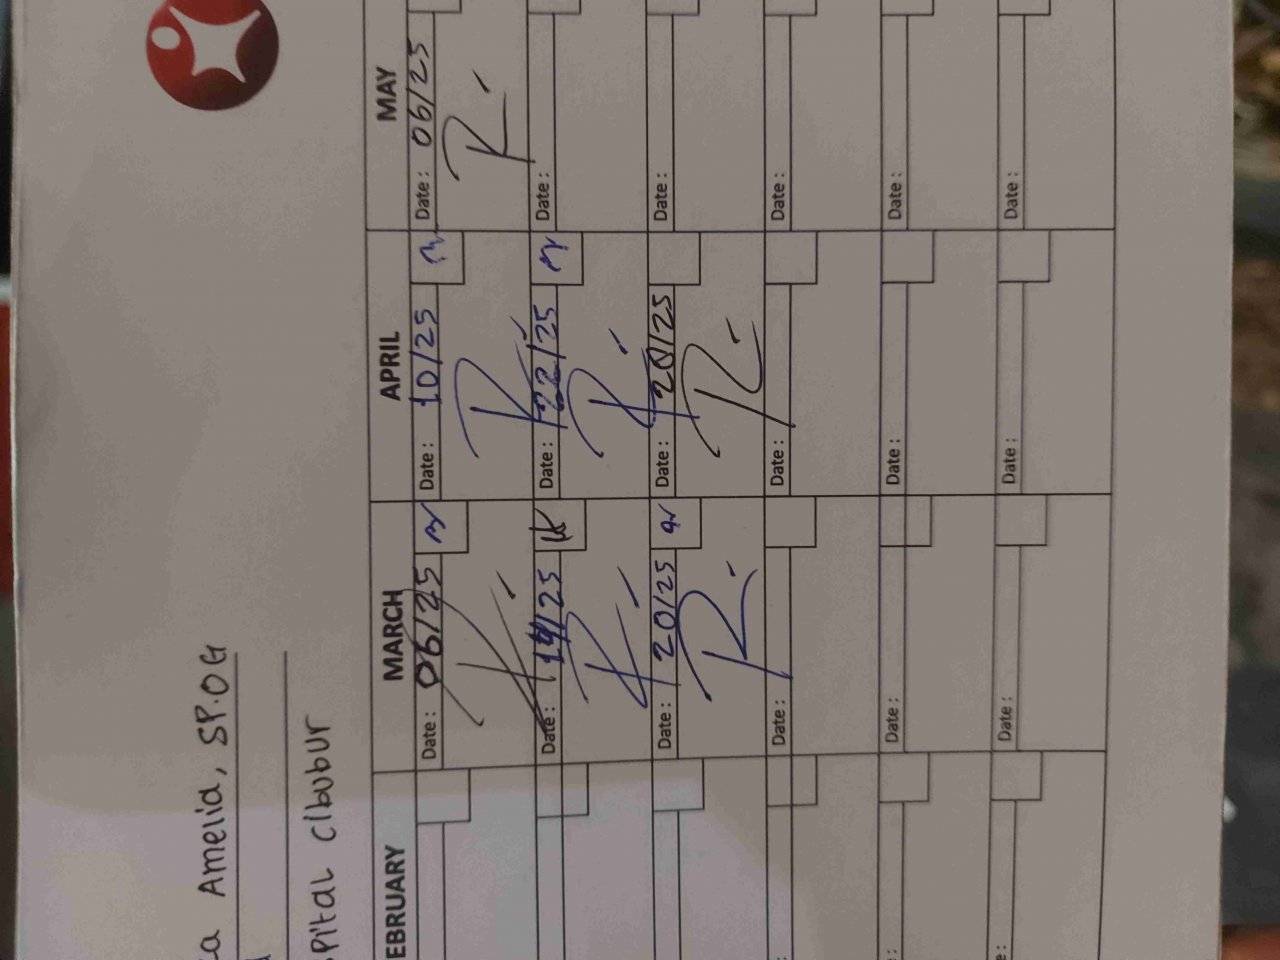 a Amelia, SP.OG
spital cibubur
EBRUARY MARCH APRIL MAY
Date : 06/25 Date : 10/25 Date : 06/25
Date : 14/25 Date : 22/25 Date :
Date : 20/25 Date : 20/25 Date :
Date : Date : Date :
Date : Date : Date :
Date : Date : Date :